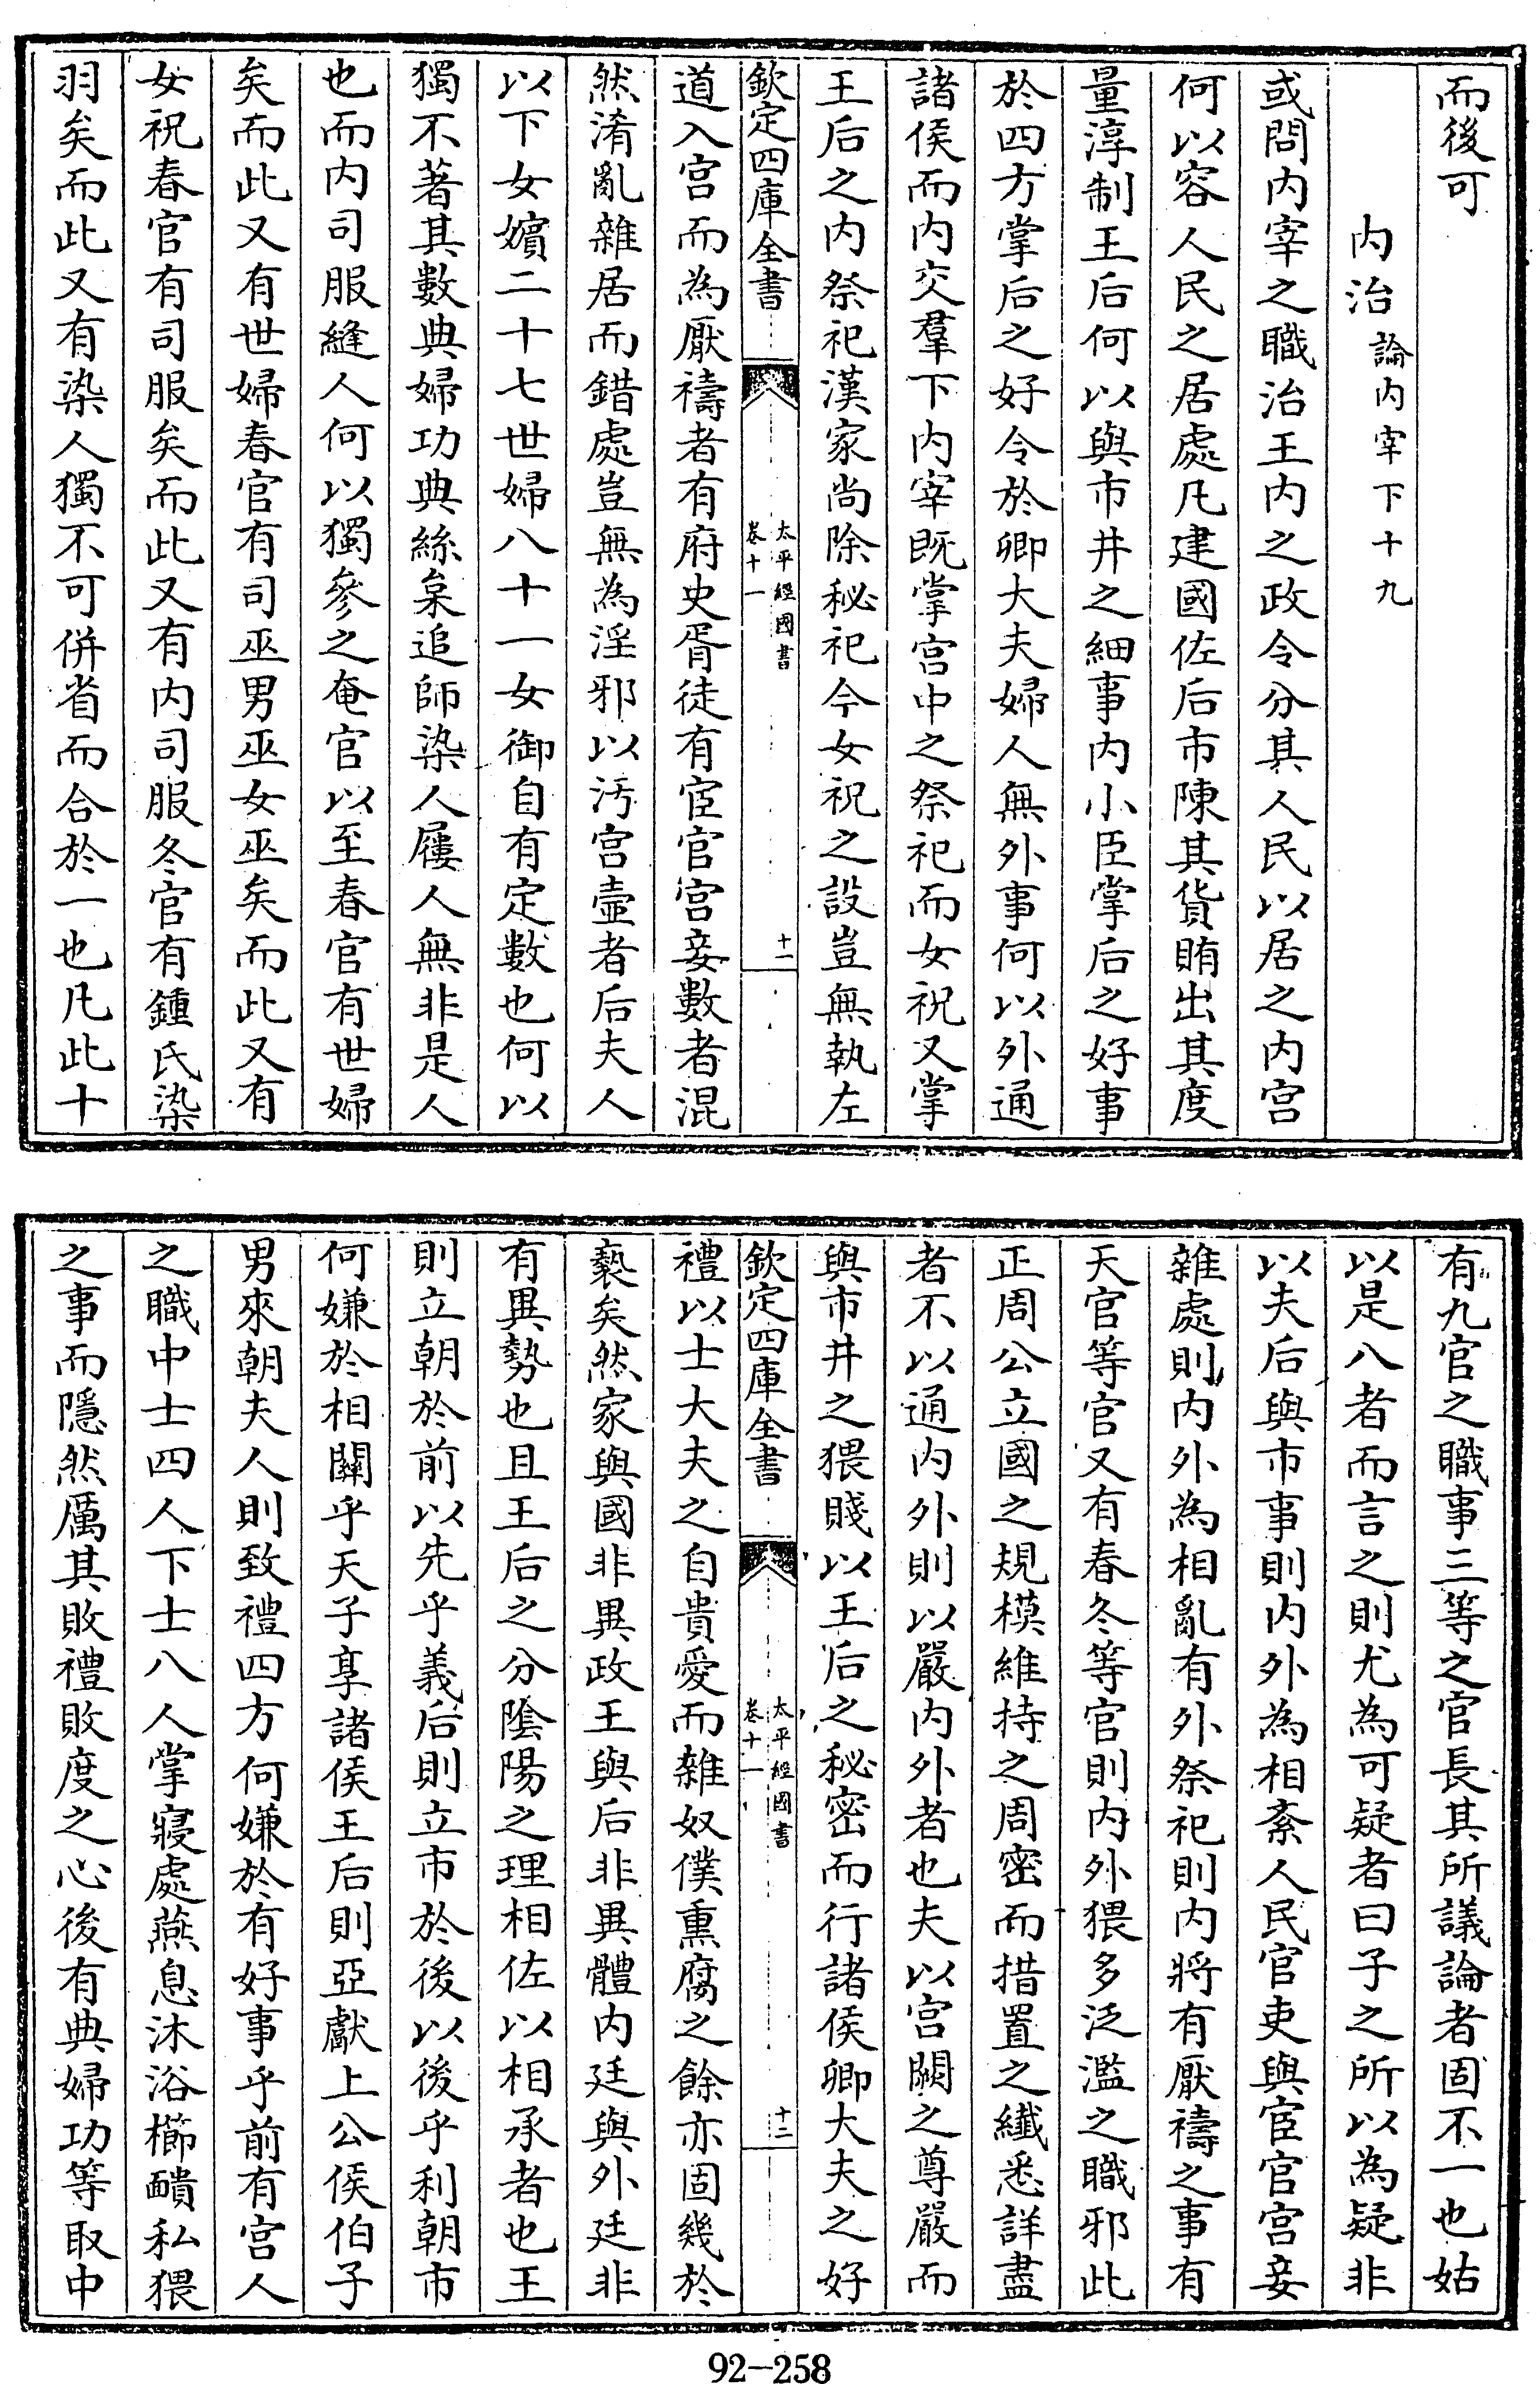 而後可
内治論内宰下十九
或問内宰之職治王内之政令分其人民以居之内宫
何以容人民之居處凡建國佐后市陳其貨賄出其度
量淳制王后何以與市井之細事内小臣掌后之好事
於四方掌后之好令於卿大夫婦人無外事何以外通
諸侯而内交羣下内宰既掌宫中之祭祀而女祝又掌
王后之内祭祀漢家尚除秘祀今女祝之設豈無執左
欽定四庫全書
太平經國書
卷十一
十一
道入宫而為厭禱者有府史胥徒有宦官宫妾數者混
然淆亂雜居而錯處豈無為淫邪以汚宫壼者后夫人
以下女嬪二十七世婦八十一女御自有定數也何以
獨不著其數典婦功典絲枲追師染人屨人無非是人
也而内司服縫人何以獨參之奄官以至春官有世婦
矣而此又有世婦春官有司巫男巫女巫矣而此又有
女祝春官有司服矣而此又有内司服冬官有鍾氏染
羽矣而此又有染人獨不可併省而合於一也凡此十
有九官之職事三等之官長其所議論者固不一也姑
以是八者而言之則尤為可疑者曰子之所以為疑非
以夫后與市事則内外為相紊人民官吏與宦官宫妾
雜處則内外為相亂有外祭祀則内將有厭禱之事有
天官等官又有春冬等官則内外猥多泛濫之職邪此
正周公立國之規模維持之周密而措置之纎悉詳盡
者不以通内外則以嚴内外者也夫以宫闕之尊嚴而
與市井之猥賤以王后之秘密而行諸侯卿大夫之好
欽定四庫全書
太平經國書
卷十一
十二
禮以士大夫之自貴愛而雜奴僕熏腐之餘亦固幾於
褻矣然家與國非異政王與后非異體内廷與外廷非
有異勢也且王后之分陰陽之理相佐以相承者也王
則立朝於前以先乎義后則立市於後以後乎利朝市
何嫌於相關乎天子享諸侯王后則亞獻上公侯伯子
男來朝夫人則致禮四方何嫌於有好事乎前有宫人
之職中士四人下士八人掌寢處燕息沐浴櫛靧私猥
之事而隱然厲其敗禮敗度之心後有典婦功等取中
92-258